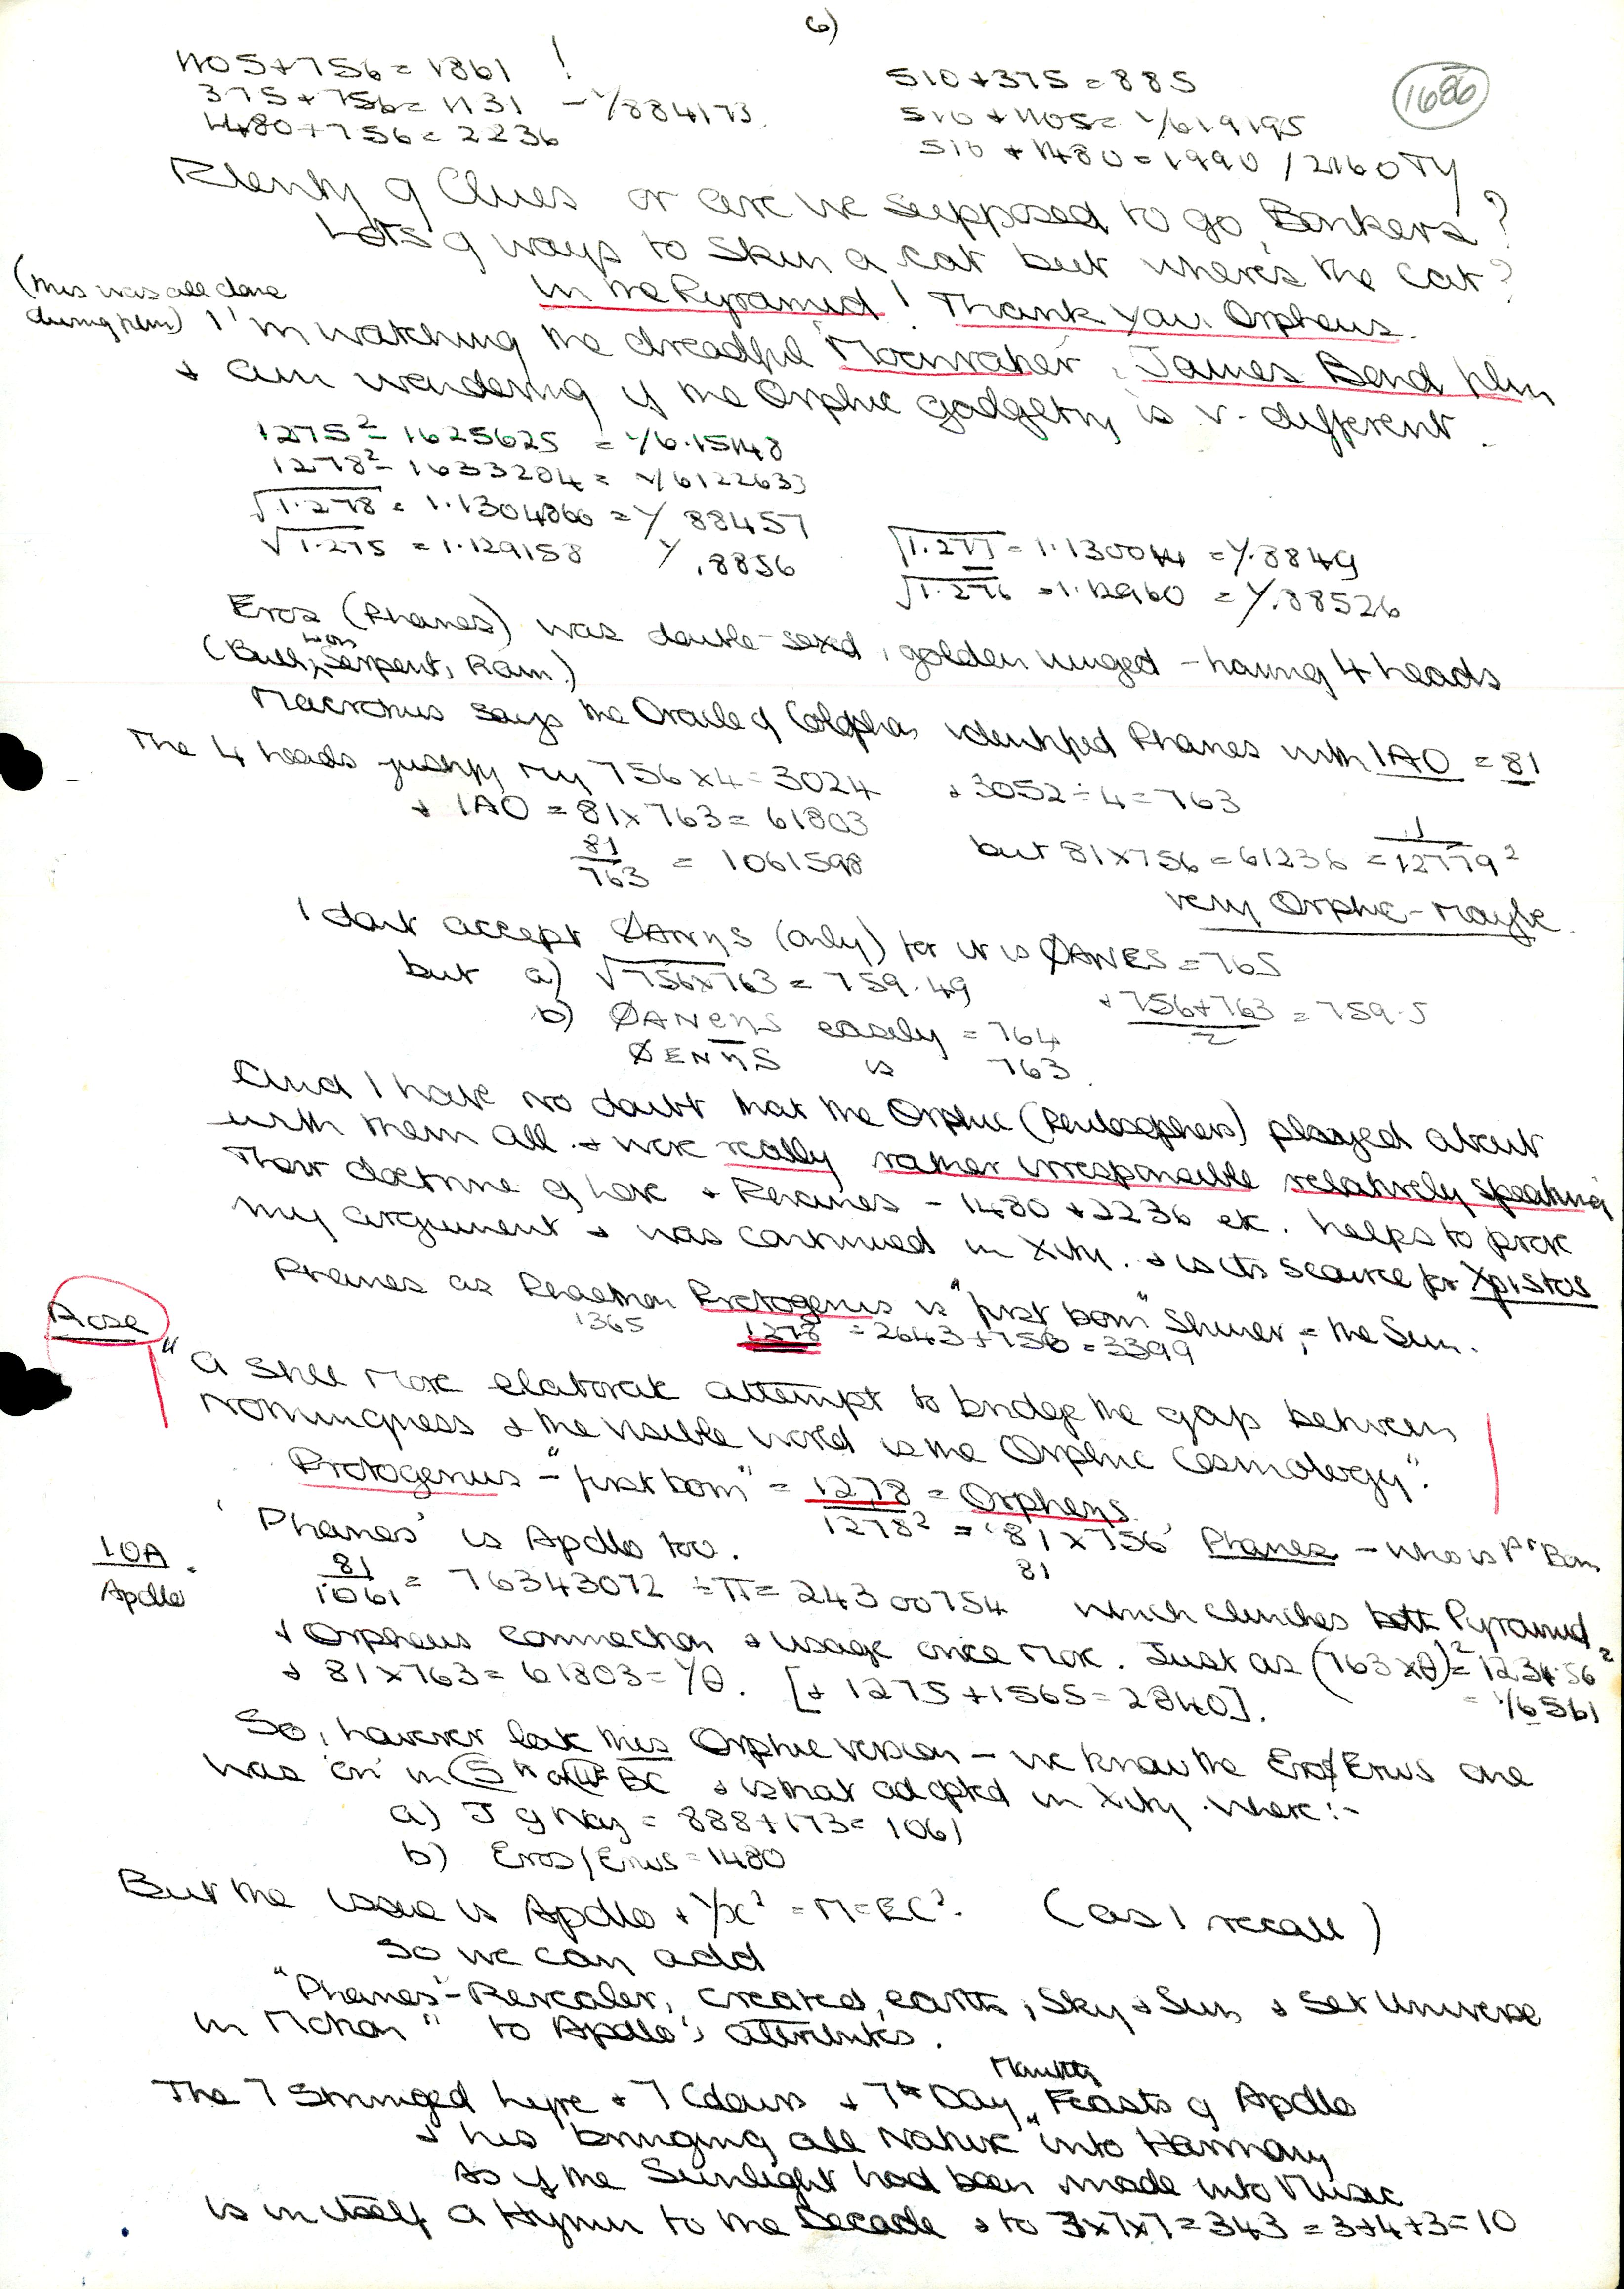 6)
1686
1105+756=1861 !
375+756=1131 - 1/884173.
1480+756=2236
510+375=885
510+1105=1/619195
510+1480=1990/2160TY
Plenty of Clues or are we supposed to go Bonkers?
Lots of ways to skin a cat but where's the Cat?
In the Pyramid! Thank you Orpheus.
(this was all done
during film)
I'm watching the dreadful "Moonraker", James Bond film
+ am wondering if the Orphic gadgetry is v. different.
1275² = 1625625 = 1/6.15148
1278² = 1633284 = 1/6122633
√1.278 = 1.1304866 = 1/88457
√1.275 = 1.129158 1/.8856
√1.277 = 1.130044 = 1/.8849
√1.276 = 1.12960 = 1/.88526
Eros (Phanes) was double-sexed, golden winged - having 4 heads
(Bull, Lion, Serpent, Ram.)
Macrobius says the Oracle of Colophon identified Phanes with IAO = 81
The 4 heads justify my 756x4=3024 + 3052÷4=763
+ IAO = 81x763=61803
81/763 = 1061598
but 81x756=61236 = 1/12779²
very Orphic - Maybe.
I don't accept ØANηS (only) for it is ØANES = 765
but a) √756x763 = 759.49
+ 756+763/2 = 759.5
b) ØANEηS easily = 764
ØENηS is 763.
And I have no doubt that the Orphic (Philosophers) played about
with them all. + were really rather irresponsible relatively speaking
Their doctrine of love + Phanes - 1480 + 2236 etc. helps to prove
my argument + was continued in Xity. + is its source for Xpistos
Phanes as Phaethon Protogenus is "first born" Shiner, = the Sun.
1365 1278 = 2643+756=3399
Rose
"A still more elaborate attempt to bridge the gap between
Nothingness + the visible world is the Orphic Cosmology".
Protogenus - "first born" = 1278 = Orpheus
1278² = '81x756' Phanes - who is 1st Born
81
'Phanes' is Apollo too.
IOA.
Apollo
81/1061 = 76343072 ÷π= 24300754 which clinches both Pyramid
+ Orpheus connection + usage once more. Just as (763xθ)² = 1234.56²
= 1/6561
+ 81x763=61803=1/θ. [+ 1275+1565=2840].
So, however late this Orphic version - we know the Eros/Erws one
was 'on' in 5th or 4th BC + is that adopted in Xity. Where:-
a) J of Naz = 888+173=1061
b) Eros/Erws=1480
But the issue is Apollo + 1/x² = M=EC². (as I recall)
So we can add
"Phanes - Revealer, created, earth, Sky + Sun + set Universe
in Motion" to Apollo's attributes.
The 7 stringed lyre + 7 Colours + 7th Day Monthly Feasts of Apollo
+ his "bringing all Nature" into Harmony
As if the Sunlight had been made into Music
is in itself a Hymn to the Decade + to 7x7x7=343=3+4+3=10